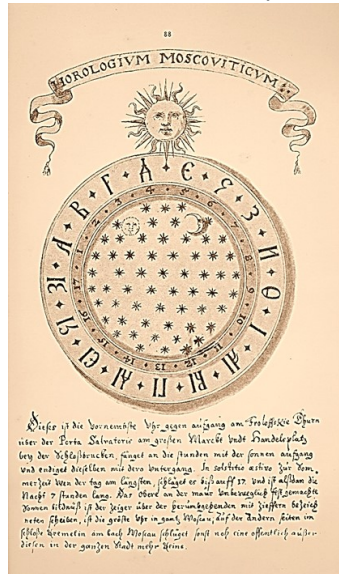 88
HOROLOGIVM MOSCOVITICVM
А В Г Д Є Ѕ З И Ѳ І
2 3 4 5 6 7 8 9 10 11 12 13 14 15 16 17
Dieses ist die Vornembste Uhr gegen aufgang am Froloffskie Thurn
über der Porta Salvatoris am großen Marckt undt Handelsplatz
bey der Schloßbrucken, fänget an die stunden mit der sonnen aufgang
und endiget dieselben mit dero Untergang. In solstitio æstivo zur Som,
merzeit wen der tag am längsten, schläget er biß auff 17. und ist alßdan die
Nacht 7 stunden lang. Das obere an der maur unbeweglich fest gemachte
Sonnen bildnüß ist der zeiger über der herumbgehenden mit zieffern bezeich
neten scheiben, ist die größte Uhr in gantz Moskau, auf der andern seiten im
schloße Kremelin am bach Moskau schläget sonst noch eine offentlich außer
diesen in der gantzen Stadt mehr keine.